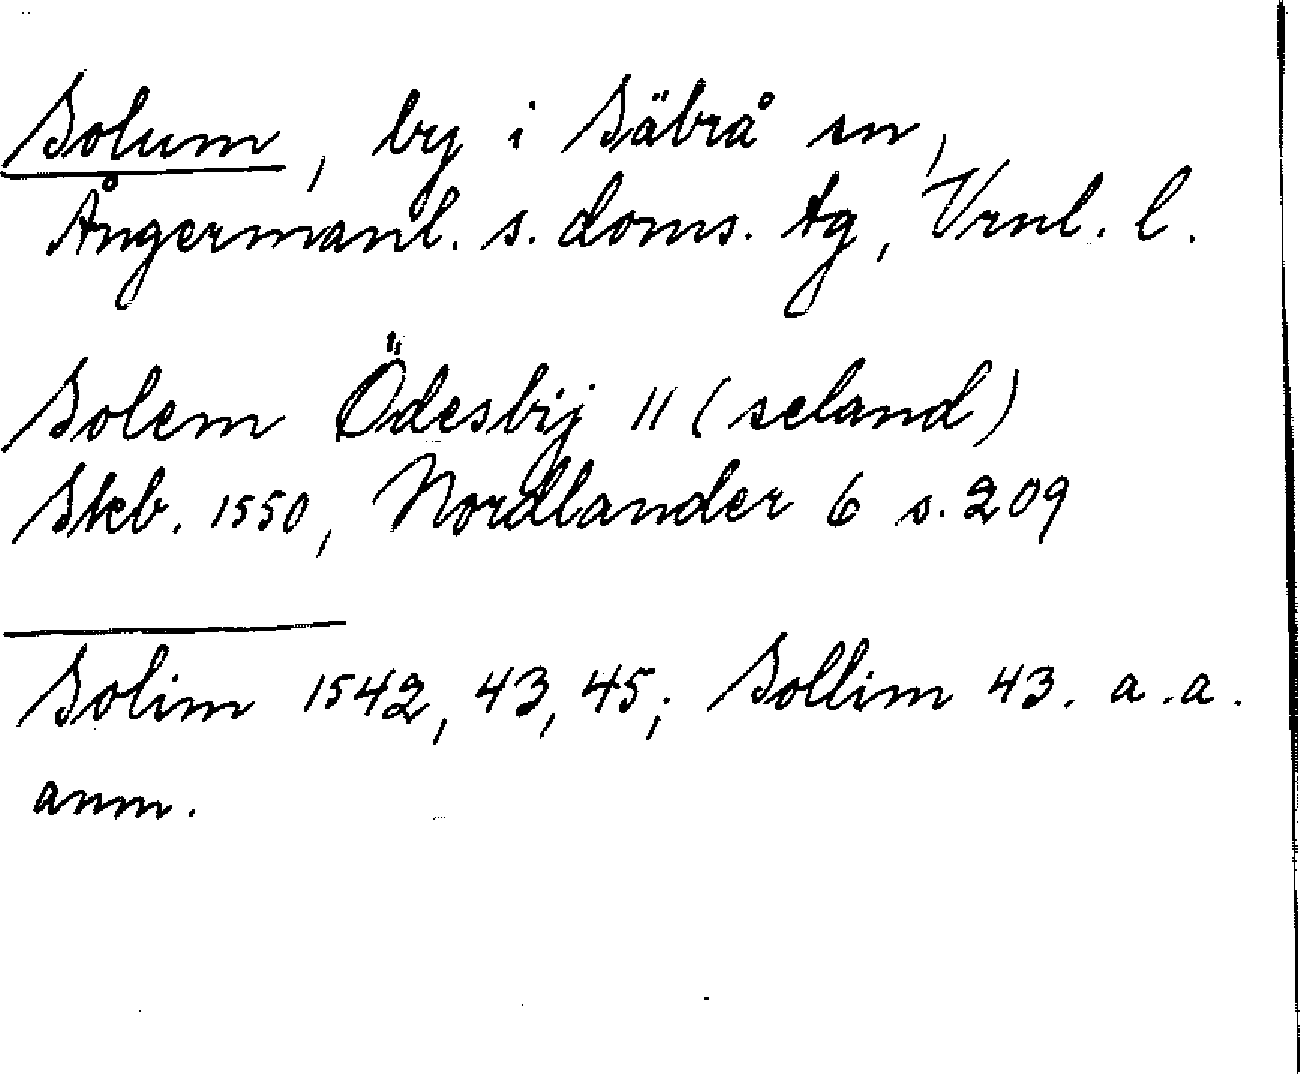 Solum, by i Säbrå sn,
Ångermanl. s. doms. tg, Vrnl. l.
Solem Ödesbij 11 (seland)
Skb. 1550, Nordlander 6 s. 209
Solim 1542, 43, 45; Sollim 43. a.a.
anm.